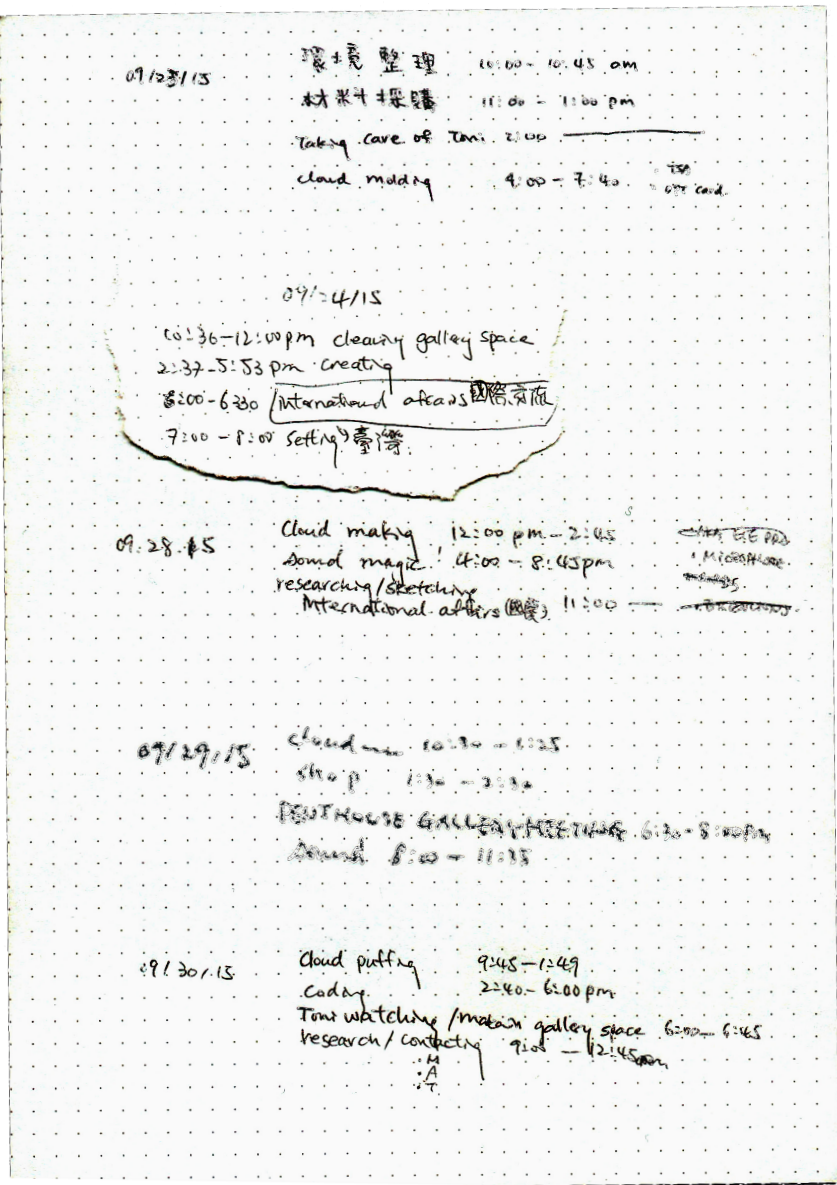 09/23/15
環境整理 10:00 - 10:45 am
材料採購 11:00 - 1:00 pm
Taking care of Toni 2:00 ———
cloud molding 4:00 - 7:40
card
09/24/15
10:36-12:00pm cleaning gallery space
2:37-5:53 pm creating
6:00-6:30 International affairs 國際交流
7:00 - 8:00 setting 臺灣
09.28.15
Cloud making 12:00 pm - 2:45
Sound magic! 4:00 - 8:45pm
• MICROPHONE
researching/sketching
International affairs 11:00 —
09/29/15
cloud 10:30 - 1:25
shop 1:30 - 2:30
PENTHOUSE GALLERY MEETING 6:30-8:00PM
Sound 8:00 - 11:35
09/30/15
Cloud puffing 9:45-1:49
Coding 2:40-6:00pm
Toni watching /matain gallery space 6:00- 6:45
research/contacting 9:00 - 12:45
• M
• A
• T